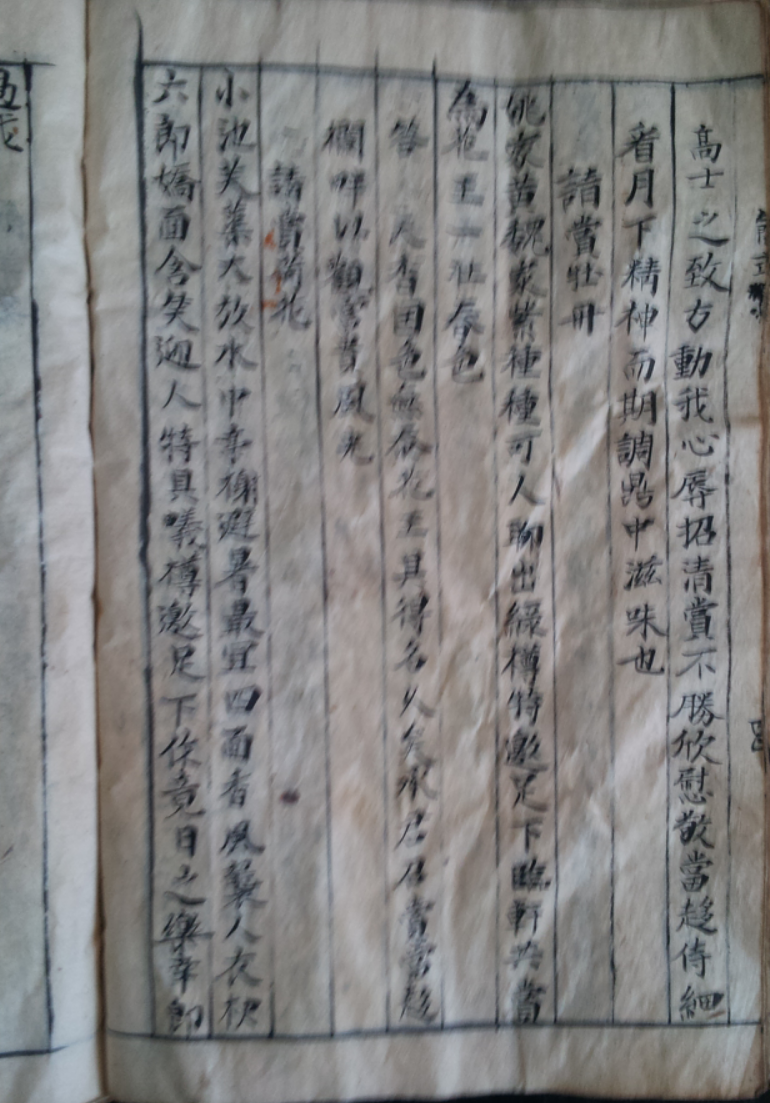 高士之致方動我心辱招清賞不勝欣慰敬當趍侍細
看月下精神而期調鼎中滋味也
請賞牡丹
姚家黃魏家紫種種可人聊出綠樽特邀足下臨軒共賞
為花王一壯春色
答 天香國色無疑花王具得名久矣承召賞當趍
欄畔以觀富貴風光
請賞荷花
小池芙蕖大放水中亭榭避暑最宜四面香風襲人衣袂
六郎嬌面含笑迎人特具樽邀足下作竟日之樂幸即